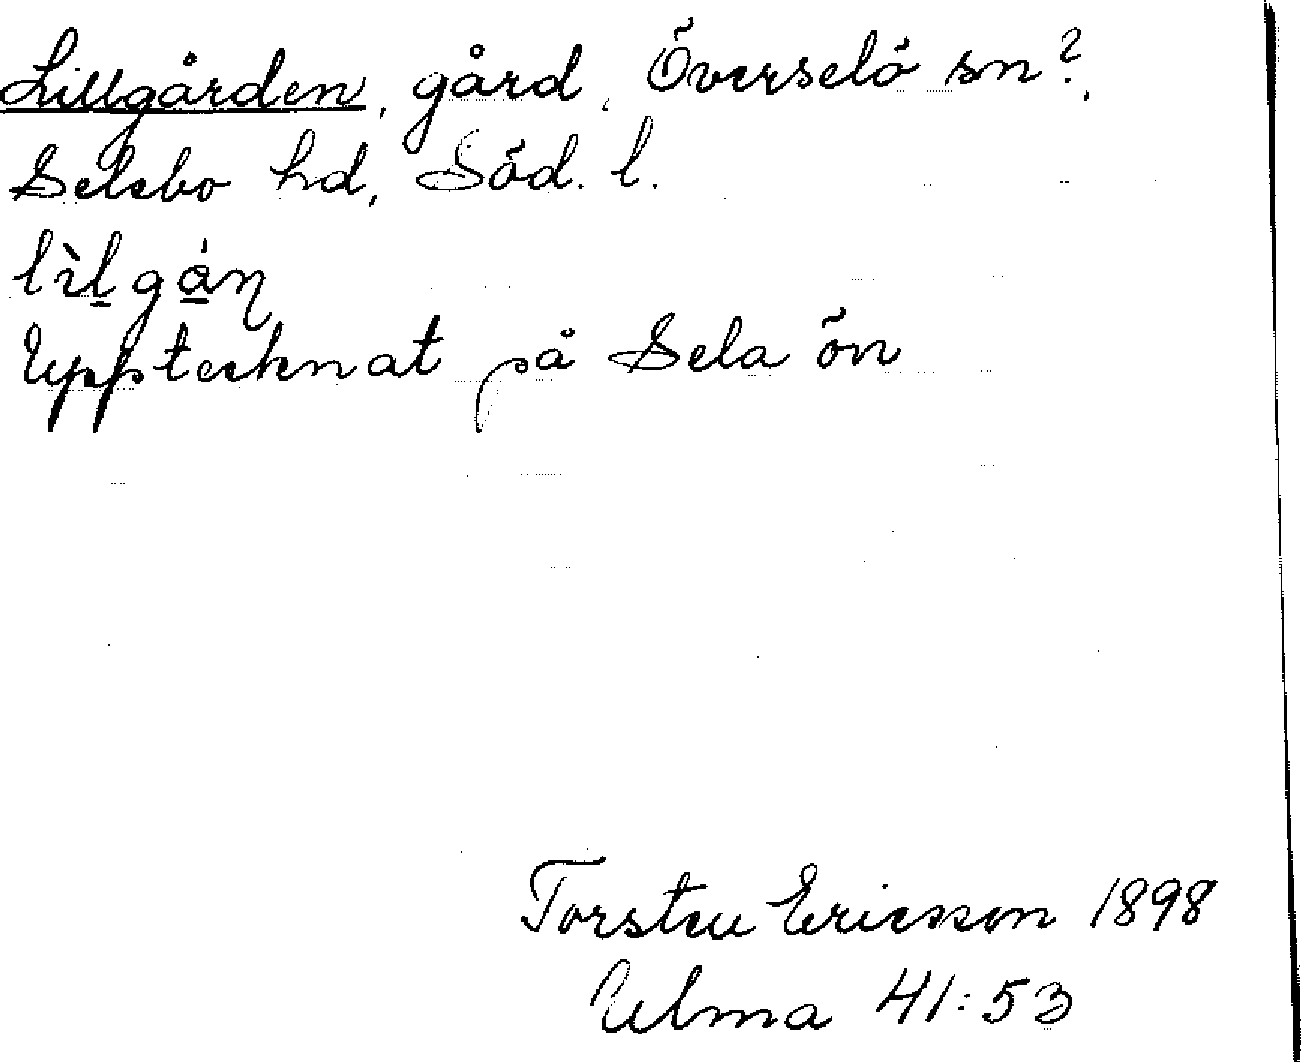 Lillgården, gård, Överselö sn?,
Selebo hd, Söd. l.
lìl̲gá̲ɳ
Upptecknat på Sela ön
Torsten Ericsson 1898
Ulma 41:53